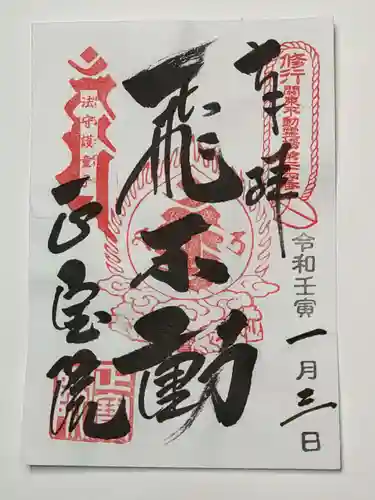 奉拝
修行
関東不動霊場第二十四番
令和壬寅 一月三日
飛不動
法守護童
正宝院